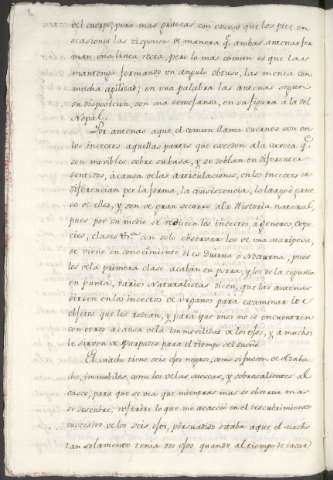 del cuerpo, pero mas gruesas con verse que los pies en
ocasiones las dispone de manera q.e ambas antenas for
man una linea recta, pero lo mas comun es que las
mantenga formando un angulo obtuso, las menea con
mucha agilidad; en una palabra las antenas siguen
su disposicion, con una semejansa, en su figura á la del
Nopál.
Por antenas aque el comun llama cuernos son en
los insectos aquellas partes que exceden á la cabeza q.e
son movibles sobre su basa, y se doblan en diferentes
sentidos, á causa de las articulaciones, en los insectos se
diferencian por la forma, la consistencia, lo largo ó grue
so de ellas, y son de gran socorro á la Historia natural,
pues por su medio se reducen los insectos á generos, espe
cies, clases &.a con solo observar los de una mariposa,
se viene en conocimiento si es diurna ó Nocturna, pues
los de la primera clase acaban en porra, y los de la segunda
en punta, varios Naturalistas dicen, que las antenas
sirven en los insectos de organos para examinar los
objetos que los rodean, y para que unos no se encuentren
con otros á causa de la inmovilidad de los ojos, y á muchos
le sirven de para el tiempo del sueño.
El macho tiene seis ojos negros, como si fuesen de Azaba
che, inmobiles, como los de las moscas, y sobresalientes al
casco, para que se vea que mientras mas se observa mas
se descubre, referiré lo que me acaeció en el descubrimiento
sucesivo de los seis ojos, persuadido estaba aque el macho
tan solamente tenia dos ojos quando al tiempo de